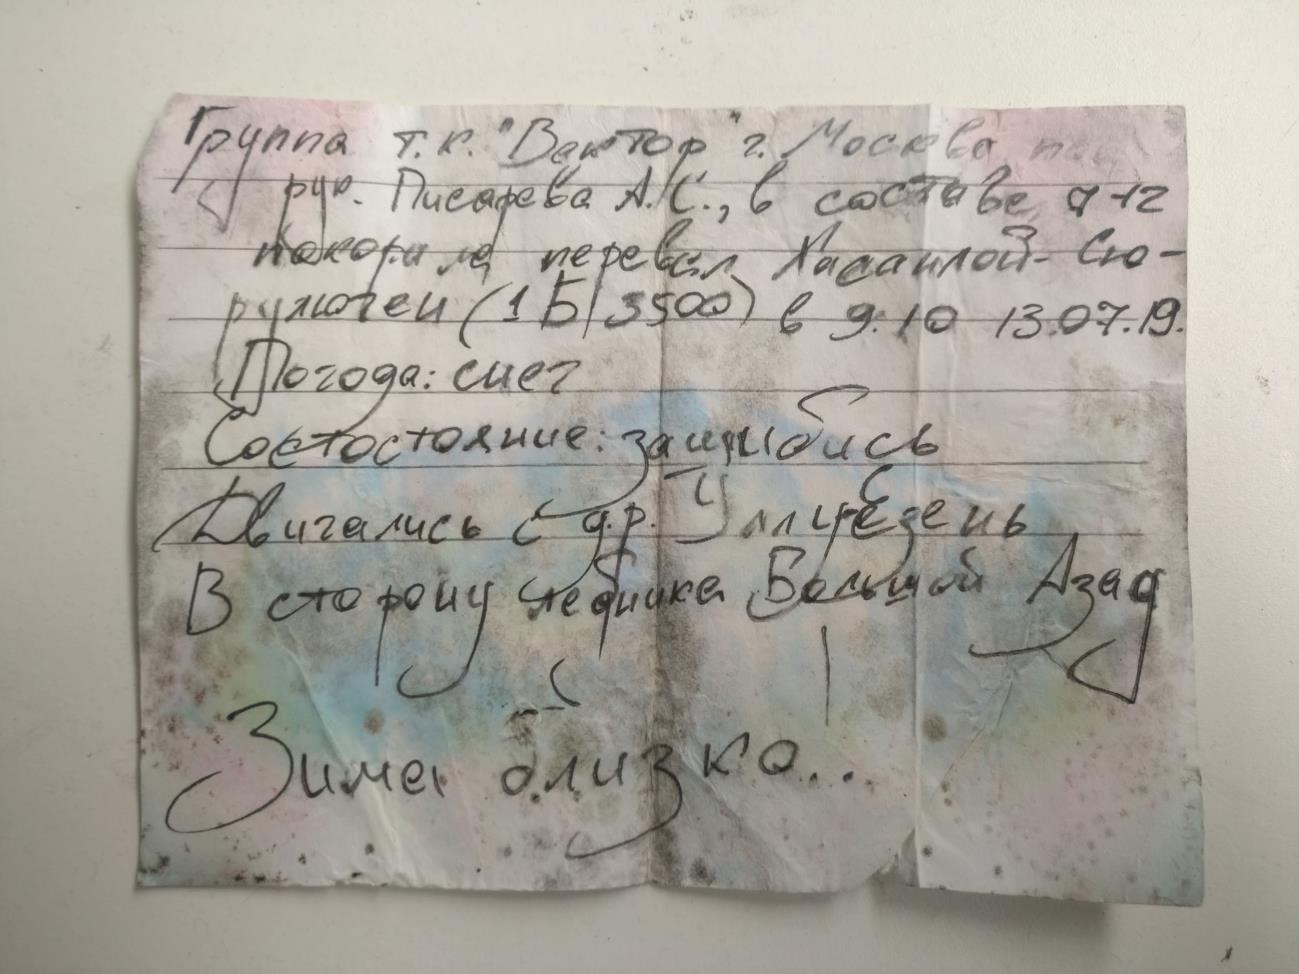 Группа т.к. "Вектор" г. Москва под
рук. Писарева А.С., в составе 7+2
покорила перевал Хасанкой-Сю-
рулюген (1Б, 3500) в 9:10 13.07.19.
Погода: снег
Состостояние: зашыбись
Двигались с д.р. Уллуезень
В сторону ледника Большой Азау
Зима близко...